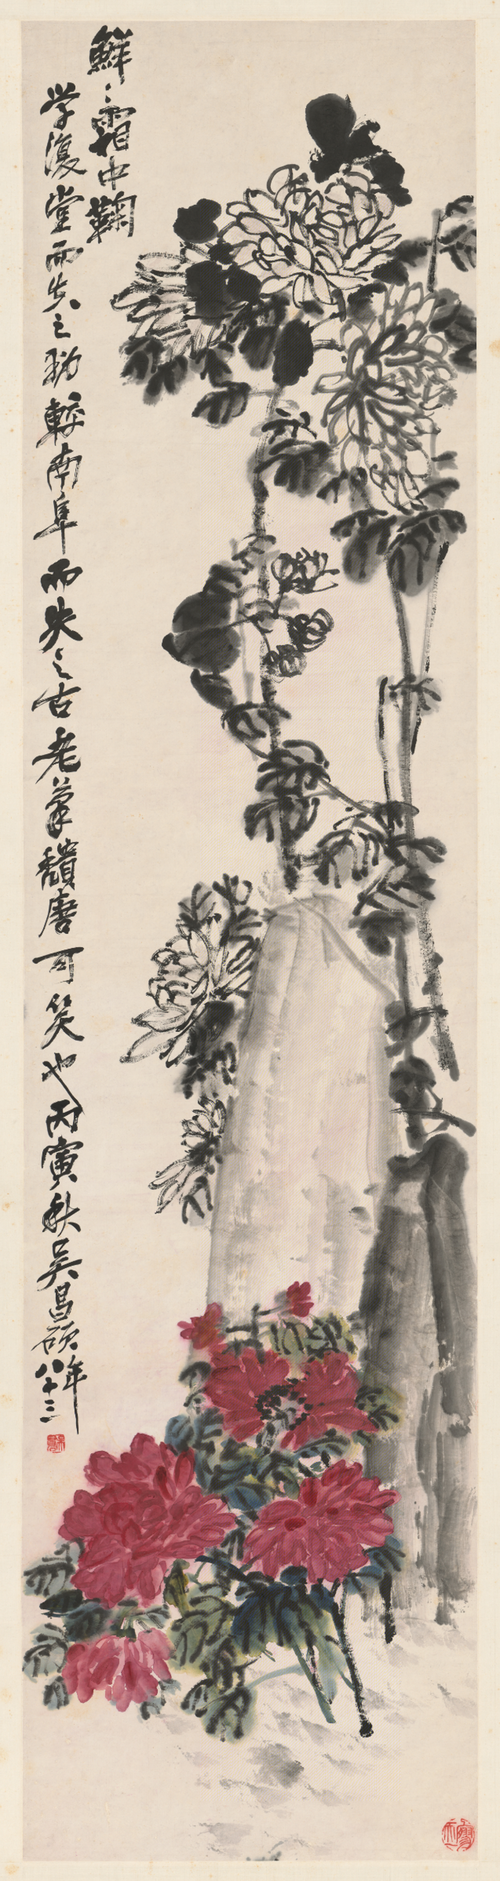 鮮〻霜中鞠
学復堂而失之拗較南阜而失之古老筆穨唐可笑也丙寅秋吳昌碩年
八十三